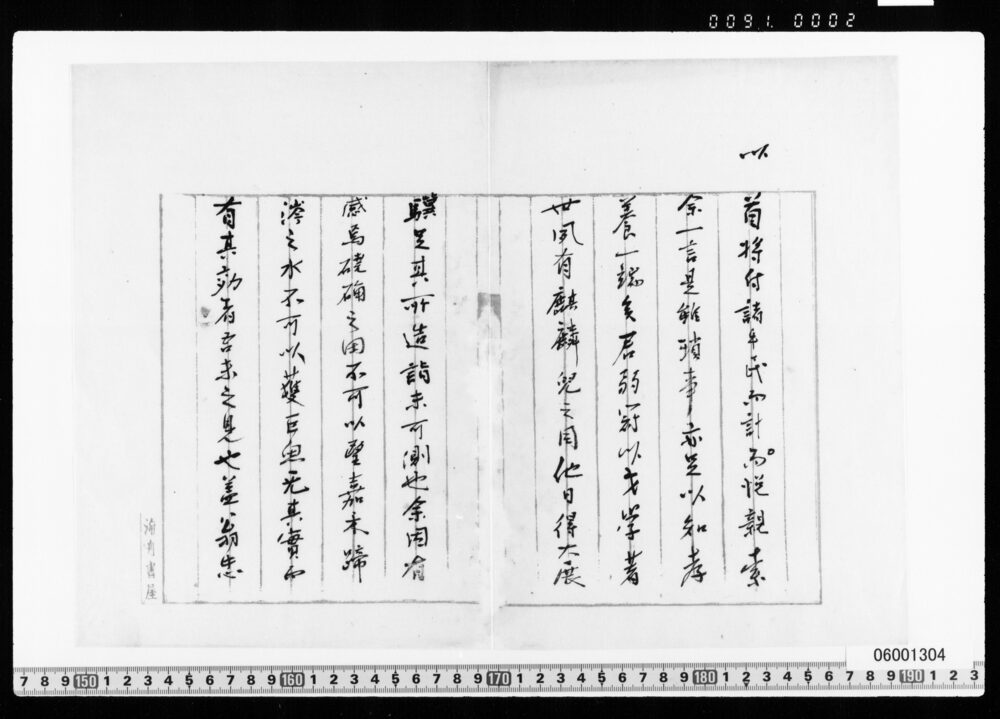 0091. 0002
以
首将付諸手民而計而悦親索
余一言是雖瑣事亦足以知孝
養一端矣君弱冠以才学著
世夙有麒麟兒之目他日得大展
驥足其所造詣未可測也余因有
感焉磽确之田不可以望嘉禾蹄
涔之水不可以獲巨魚无其實而
有其効者吾未之見也蓋翁忠
書屋
06001304
7 8 9 150 1 2 3 4 5 6 7 8 9 160 1 2 3 4 5 6 7 8 9 170 1 2 3 4 5 6 7 8 9 180 1 2 3 4 5 6 7 8 9 190 1 2 3